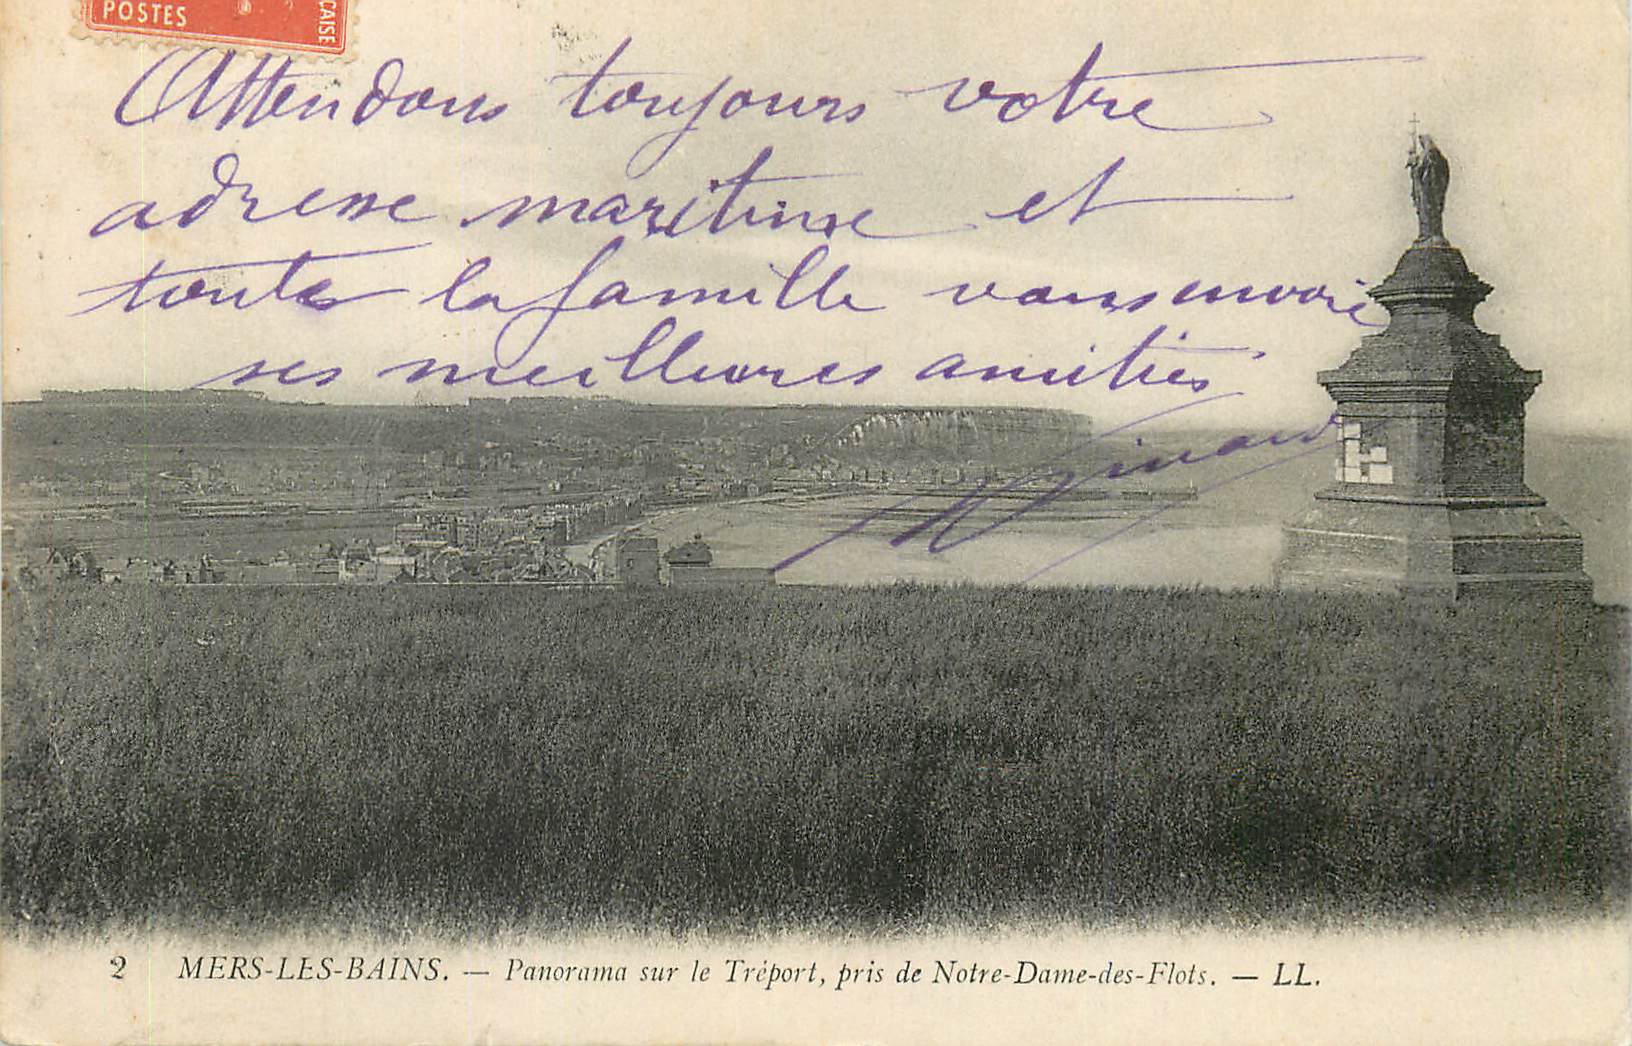 POSTES
ÇAISE
Attendons toujours votre
adresse maritime et
toute la famille vous envoie
ses meilleures amitiés
2 MERS-LES-BAINS. — Panorama sur le Tréport, pris de Notre-Dame-des-Flots. — LL.